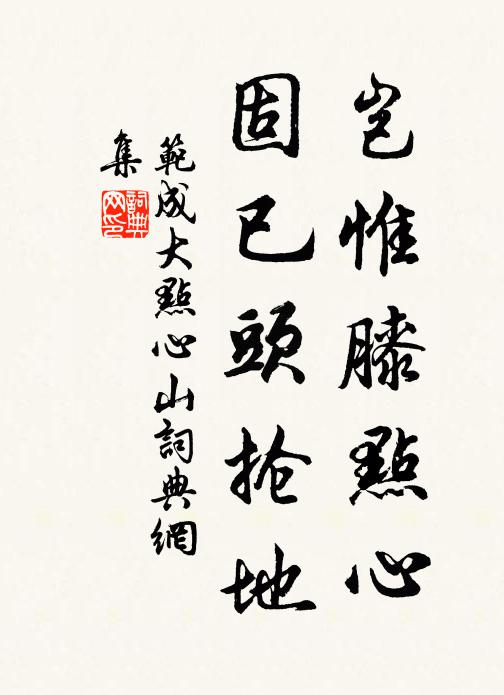 豈惟膝點心
固已頭搶地
範成大點心山詞典網
集
詞典
网印